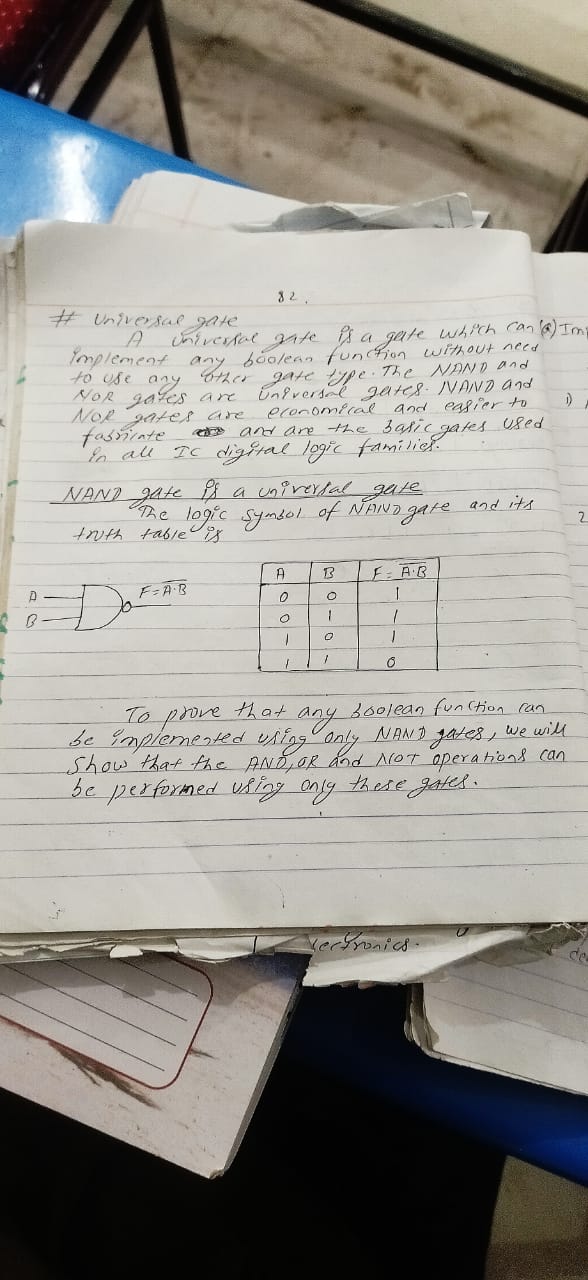 82.
# Universal gate
A universal gate is a gate which can
implement any boolean function without need
to use any other gate type. The NAND and
NOR gates are universal gates. NAND and
NOR gates are economical and easier to
fabricate and are the basic gates used
in all IC digital logic families.
NAND gate is a universal gate
The logic symbol of NAND gate and its
truth table is
A
B
F = \overline{A·B}
A B F = \overline{A·B}
0 0 1
0 1 1
1 0 1
1 1 0
To prove that any boolean function can
be implemented using only NAND gates, we will
show that the AND, OR and NOT operations can
be performed using only these gates.
lectronics.
(a) Im
1)
2